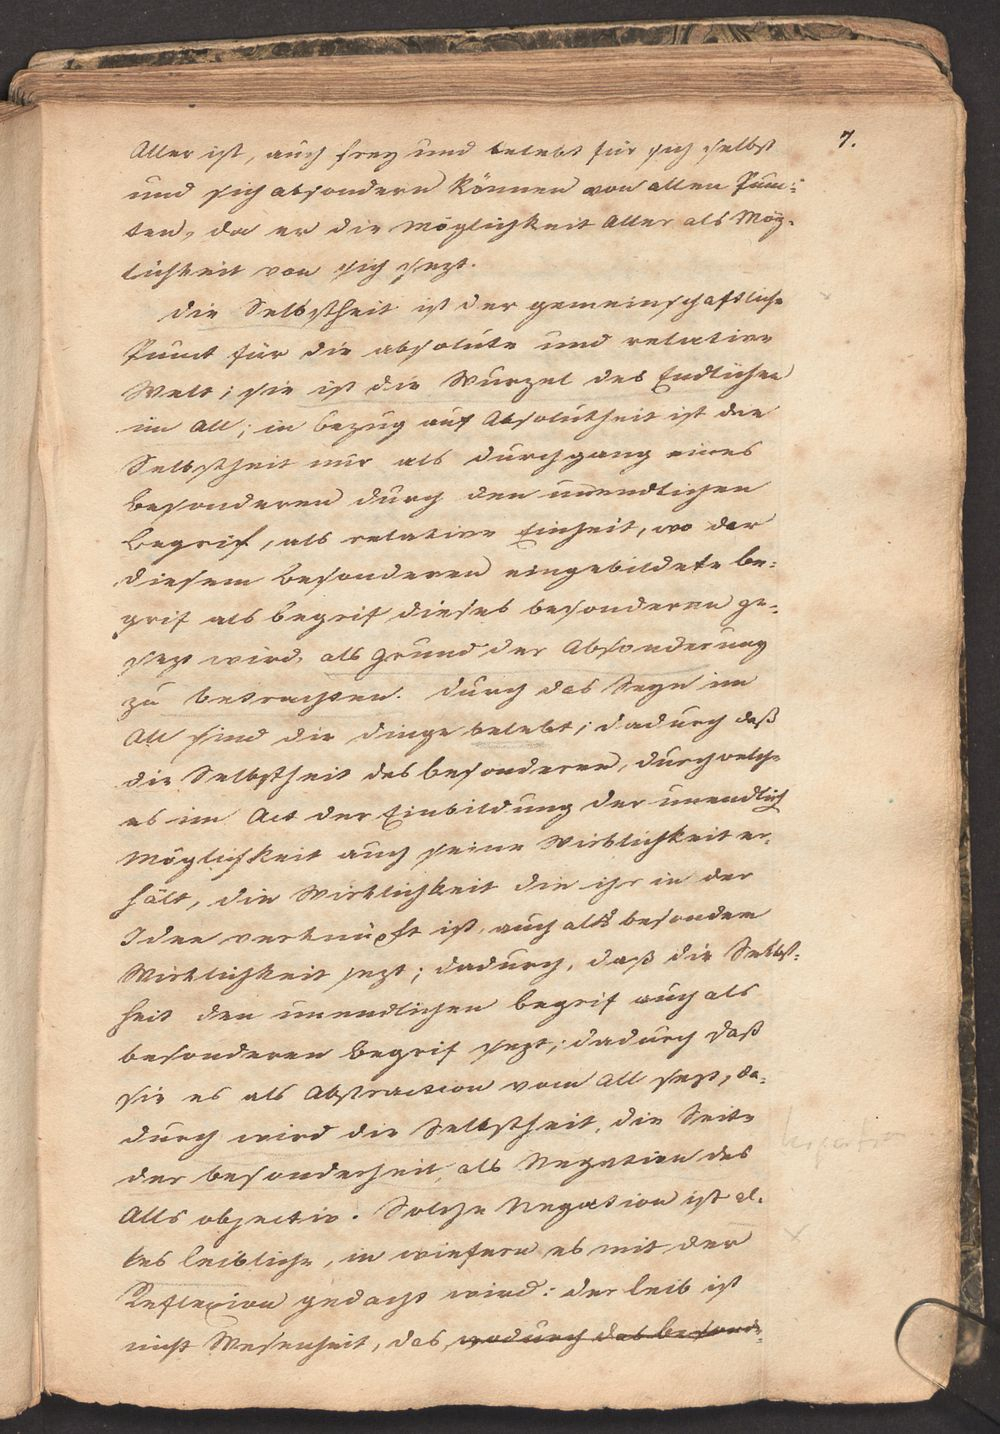 7.
Aller ist, auch frey und belebt für sich selbst
und sich absondern können von allen Punc=
ten, da er die Möglichkeit Aller als Mög=
lichkeit von sich sezt.
Die Selbstheit ist der gemeinschaftliche
Punct für die absolute und relative
Welt; sie ist die Wurzel des Endlichen
im All; in Bezug auf Absolutheit ist die
Selbstheit nur als Durchgang eines
Besonderen durch den unendlichen
Begrif, als relative Einheit, wo der
diesem Besonderen eingebildete Be=
grif als Begrif dieses besonderen ge=
sezt wird, als Grund der Absonderung
zu betrachten. Durch das Seyn im
All sind die Dinge belebt; dadurch daß
die Selbstheit des besonderen, durch welche
es im Act der Einbildung der unendlich
Möglichkeit auch seine Wirklichkeit er=
hält, die Wirklichkeit die ihr in der
Idee verknüpft ist, auch als besondere
Wirklichkeit sezt; dadurch, daß die Selbst=
heit den unendlichen Begrif auch als
besonderen Begrif sezt; dadurch daß
sie es als Abstraction vom All sezt, da=
durch wird die Selbstheit, die Seite
der Besonderheit, als Negation des
Alls objectiv. Solche Negation ist al=
les leibliche, in wiefern es mit der
Reflexion gedacht wird: der Leib ist
nicht Wesenheit, das, wodurch das besonde=